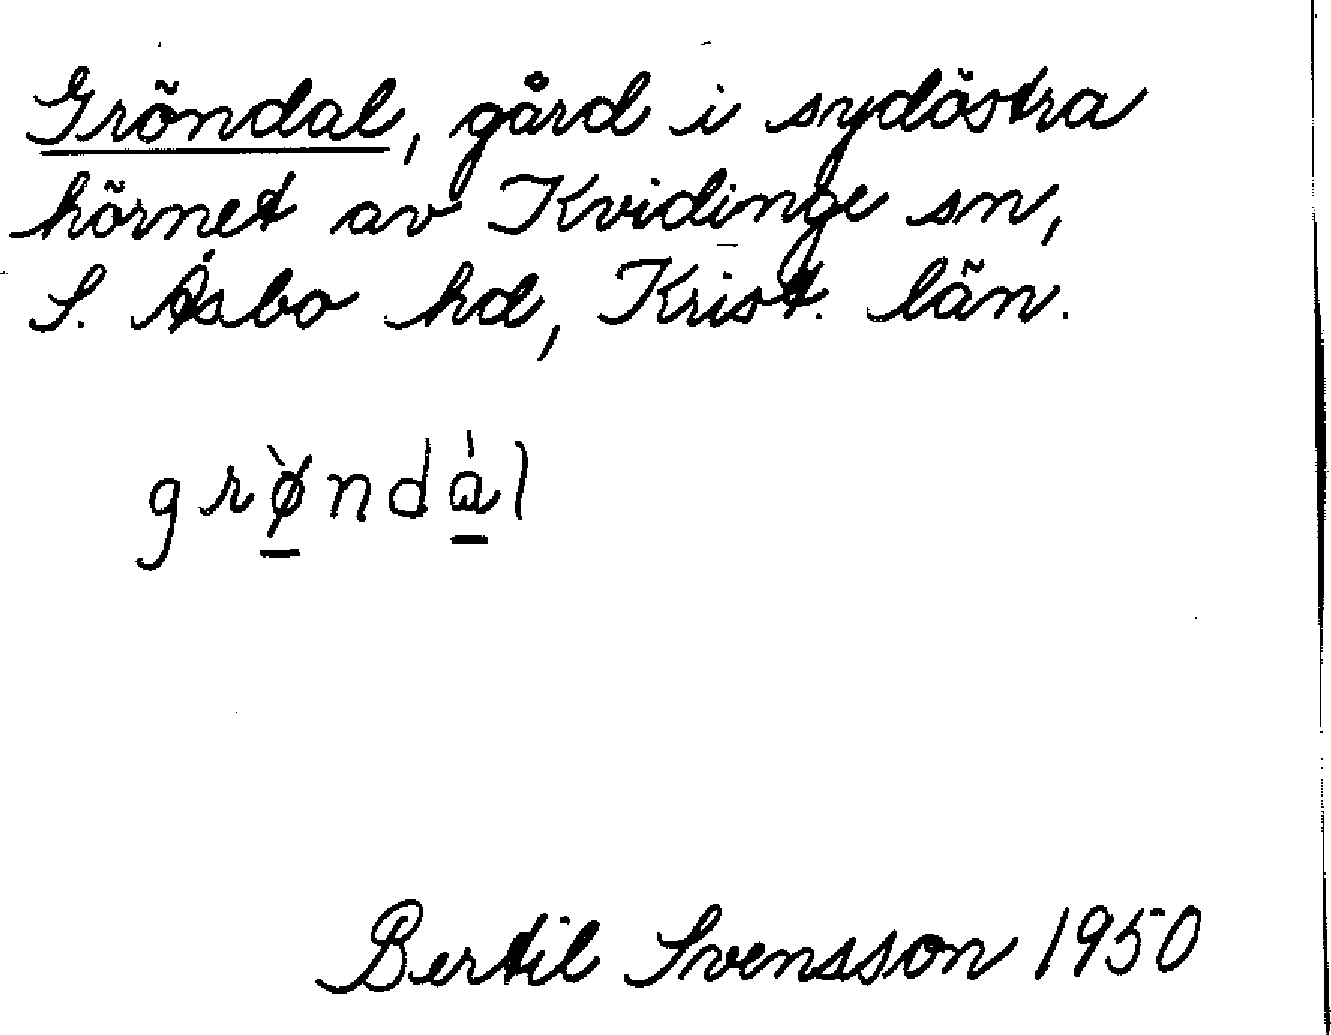 Gröndal, gård i sydöstra
hörnet av Kvidinge sn,
S. Åsbo hd, Krist. län.
grø̀ndál
Bertil Svensson 1950